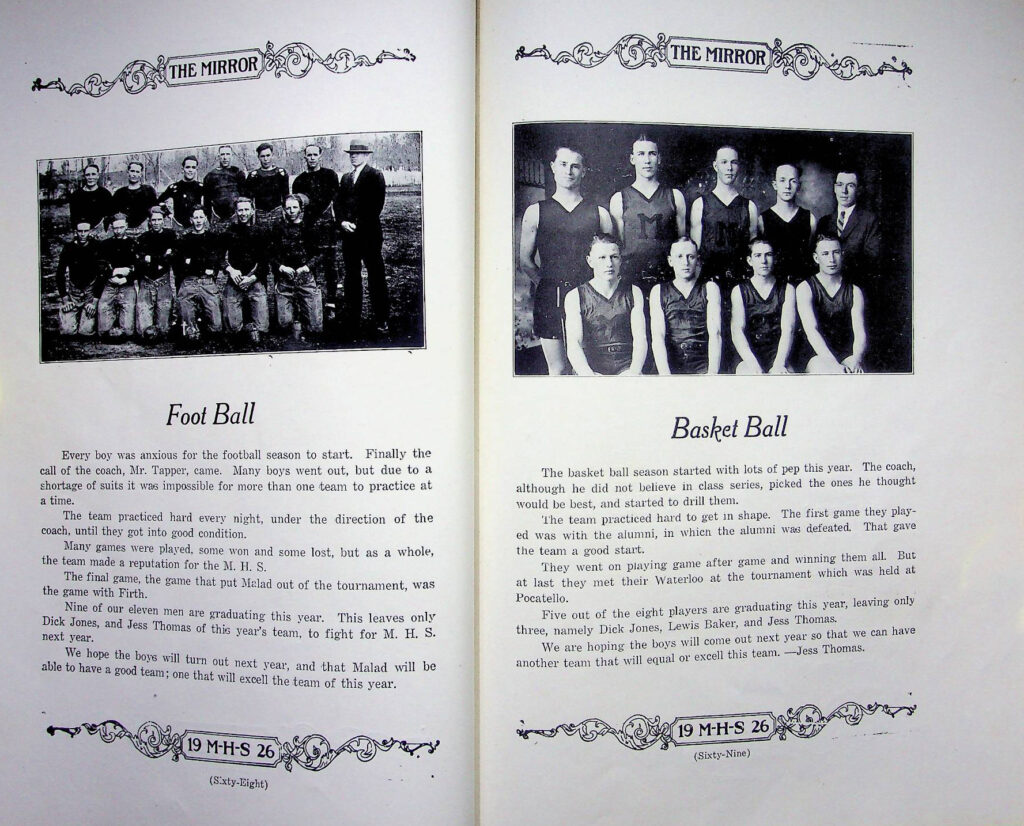 THE MIRROR
Foot Ball
Every boy was anxious for the football season to start. Finally the
call of the coach, Mr. Tapper, came. Many boys went out, but due to a
shortage of suits it was impossible for more than one team to practice at
a time.
The team practiced hard every night, under the direction of the
coach, until they got into good condition.
Many games were played, some won and some lost, but as a whole,
the team made a reputation for the M. H. S.
The final game, the game that put Malad out of the tournament, was
the game with Firth.
Nine of our eleven men are graduating this year. This leaves only
Dick Jones, and Jess Thomas of this year's team, to fight for M. H. S.
next year.
We hope the boys will turn out next year, and that Malad will be
able to have a good team; one that will excell the team of this year.
19 M-H-S 26
(Sixty-Eight)
THE MIRROR
M
Basket Ball
The basket ball season started with lots of pep this year. The coach,
although he did not believe in class series, picked the ones he thought
would be best, and started to drill them.
The team practiced hard to get in shape. The first game they play-
ed was with the alumni, in which the alumni was defeated. That gave
the team a good start.
They went on playing game after game and winning them all. But
at last they met their Waterloo at the tournament which was held at
Pocatello.
Five out of the eight players are graduating this year, leaving only
three, namely Dick Jones, Lewis Baker, and Jess Thomas.
We are hoping the boys will come out next year so that we can have
another team that will equal or excell this team. —Jess Thomas.
19 M-H-S 26
(Sixty-Nine)